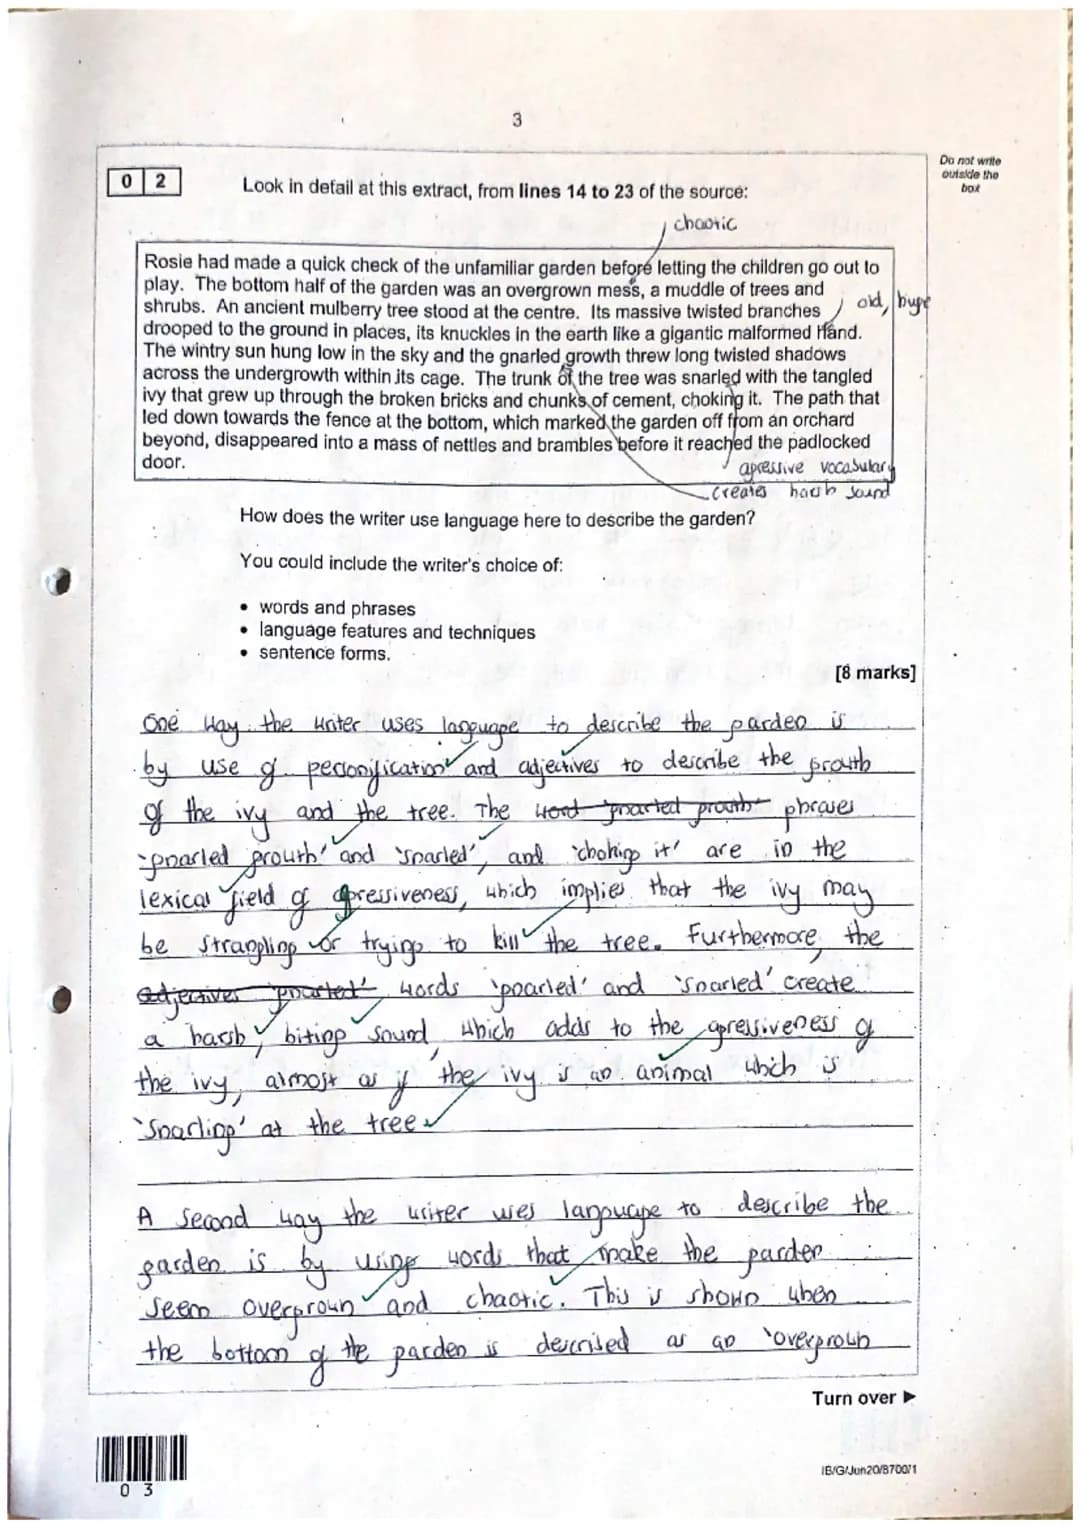 3
Do not write
outside the
box
0 2
Look in detail at this extract, from lines 14 to 23 of the source:
chaotic
Rosie had made a quick check of the unfamiliar garden before letting the children go out to
play. The bottom half of the garden was an overgrown mess, a muddle of trees and
shrubs. An ancient mulberry tree stood at the centre. Its massive twisted branches
old, huge
drooped to the ground in places, its knuckles in the earth like a gigantic malformed hand.
The wintry sun hung low in the sky and the gnarled growth threw long twisted shadows
across the undergrowth within its cage. The trunk of the tree was snarled with the tangled
ivy that grew up through the broken bricks and chunks of cement, choking it. The path that
led down towards the fence at the bottom, which marked the garden off from an orchard
beyond, disappeared into a mass of nettles and brambles before it reached the padlocked
door.
agressive vocabulary
creates harsh sound
How does the writer use language here to describe the garden?
You could include the writer's choice of:
• words and phrases
• language features and techniques
• sentence forms.
[8 marks]
One way the writer uses language to describe the garden is
by use of personification and adjectives to describe the growth
of the ivy and the tree. The word 'gnarled growth' phrases
'gnarled growth' and 'snarled', and 'choking it' are in the
lexical field of agressiveness, which implies that the ivy may
be strangling or trying to kill the tree. Furthermore, the
adjectives 'gnarled' words 'gnarled' and 'snarled' create
a harsh, biting sound, which adds to the agressiveness of
the ivy, almost as if the ivy is an animal which is
'snarling' at the tree
A second way the writer uses language to describe the
garden is by using words that make the garden
seem overgrown and chaotic. This is shown when
the bottom of the garden is described as an 'overgrown
Turn over ►
0 3
IB/G/Jun20/8700/1